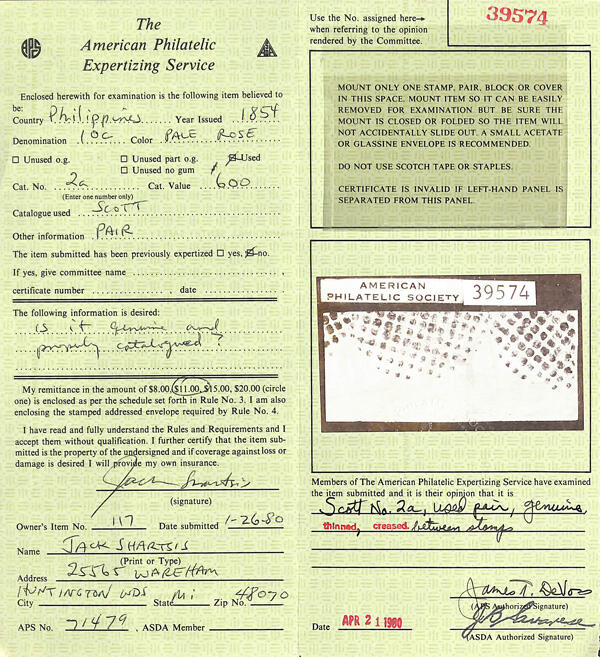 The
American Philatelic
Expertizing Service
APS
ASDA
Enclosed herewith for examination is the following item believed to
be:
Country Philippines Year Issued 1854
Denomination 10C Color PALE ROSE
☐ Unused o.g. ☐ Unused part o.g. ☑ Used
☐ Unused no gum
Cat. No. 2a Cat. Value 600
(Enter one number only)
Catalogue used SCOTT
Other information PAIR
The item submitted has been previously expertized ☐ yes, ☑ no.
If yes, give committee name
certificate number , date
The following information is desired:
is it genuine and
properly catalogued?
My remittance in the amount of $8.00, $11.00, $15.00, $20.00 (circle
one) is enclosed as per the schedule set forth in Rule No. 3. I am also
enclosing the stamped addressed envelope required by Rule No. 4.
I have read and fully understand the Rules and Requirements and I
accept them without qualification. I further certify that the item sub-
mitted is the property of the undersigned and if coverage against loss or
damage is desired I will provide my own insurance.
Jack Shartsis
(signature)
Owner's Item No. 117 Date submitted 1-26-80
Name JACK SHARTSIS
(Print or Type)
Address 25565 WAREHAM
HUNTINGTON WDS Mi 48070
City State Zip No.
APS No. 71479, ASDA Member
Use the No. assigned here→
when referring to the opinion
rendered by the Committee.
39574
MOUNT ONLY ONE STAMP, PAIR, BLOCK OR COVER
IN THIS SPACE. MOUNT ITEM SO IT CAN BE EASILY
REMOVED FOR EXAMINATION BUT BE SURE THE
MOUNT IS CLOSED OR FOLDED SO THE ITEM WILL
NOT ACCIDENTALLY SLIDE OUT. A SMALL ACETATE
OR GLASSINE ENVELOPE IS RECOMMENDED.
DO NOT USE SCOTCH TAPE OR STAPLES.
CERTIFICATE IS INVALID IF LEFT-HAND PANEL IS
SEPARATED FROM THIS PANEL.
AMERICAN
PHILATELIC SOCIETY 39574
Members of The American Philatelic Expertizing Service have examined
the item submitted and it is their opinion that it is
Scott No. 2a, used pair, genuine,
thinned, creased between stamps
James T. DeVoss
(APS Authorized Signature)
Date APR 21 1980
(ASDA Authorized Signature)